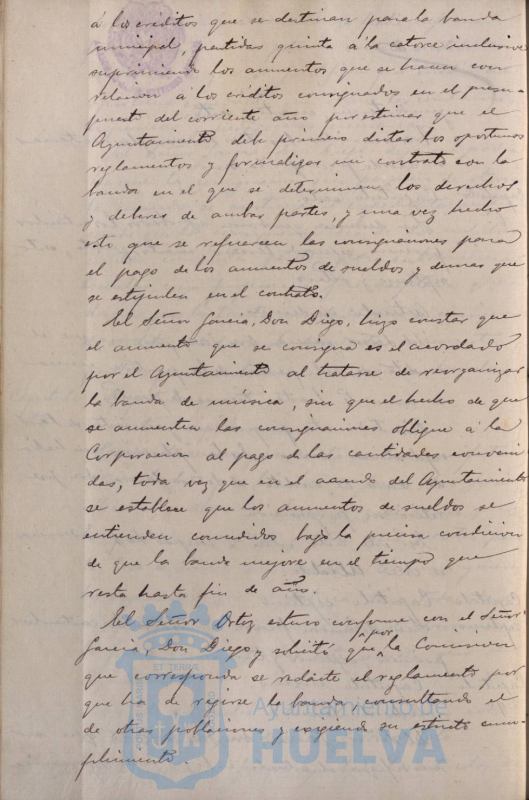 á los créditos que se destinan para la banda
municipal, partidas quinta á la catorce inclusive
suprimiendo los aumentos que se hacen con
relacion á los créditos consignados en el presu-
puesto del corriente año por estimar que el
Ayuntamiento debe primero dictar los oportunos
reglamentos y formalizar un contrato con la
banda en el que se determinen los derechos
y deberes de ambas partes, y una vez hecho
esto que se refuercen las consignaciones para
el pago de los aumentos de sueldos y demas que
se estipulen en el contrato.
El Señor Garcia, Don Diego, hizo constar que
el aumento que se consigna es el acordado
por el Ayuntamiento al tratarse de reorganizar
la banda de música, sin que el hecho de que
se aumenten las consignaciones obligue á la
Corporacion al pago de las cantidades conveni-
das, toda vez que en el acuerdo del Ayuntamiento
se establece que los aumentos de sueldos se
entienden concedidos bajo la precisa condicion
de que la banda mejore en el tiempo que
resta hasta fin de año.
El Señor Ortiz estuvo conforme con el Señor
Garcia, Don Diego y solicitó que por la Comision
que corresponda se redacte el reglamento por
que ha de regirse la banda, consultando el
de otras poblaciones y exigiendo su estricto cum-
plimiento.
Ayuntamiento de
HUELVA